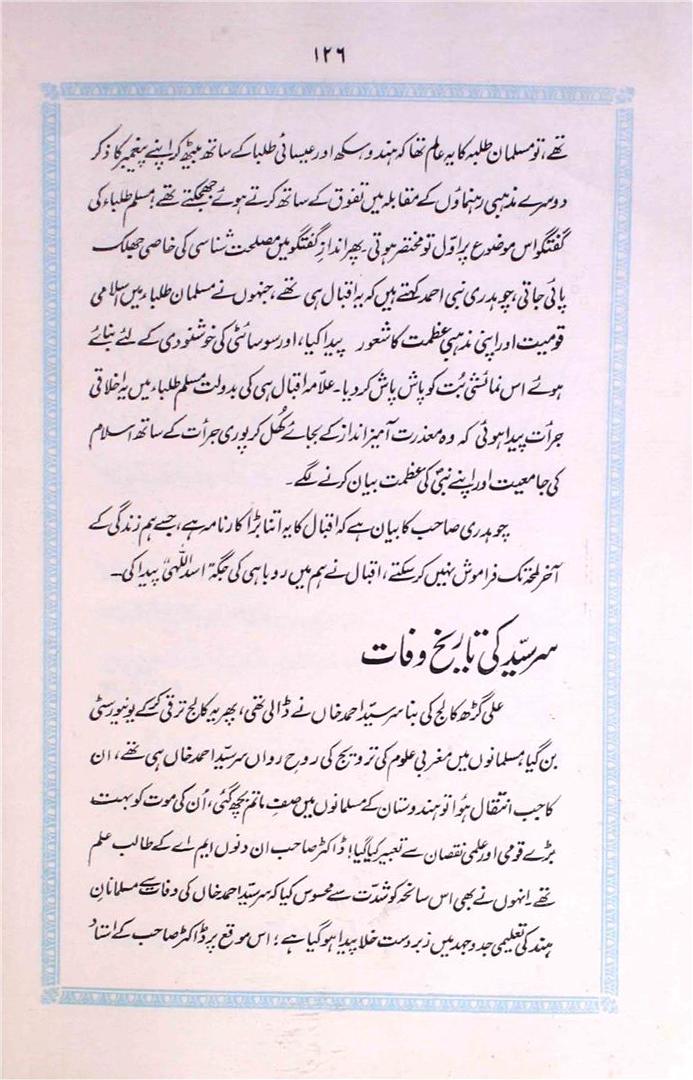 ۱۲۶
تھے، تو مسلمان طلبہ کا یہ عالم تھا کہ ہندو سکھ اور عیسائی طلبا کے ساتھ بیٹھ کر اپنے پیغمبر کا ذکر
دوسرے مذہبی رہنماؤں کے مقابلہ میں تفوق کے ساتھ کرتے ہوئے جھجکتے تھے، مسلم طلباء کی
گفتگو اس موضوع پر اوّل تو مختصر ہوتی۔ پھر اندازِ گفتگو میں مصلحت شناسی کی خاصی جھلک
پائی جاتی، چوہدری نبی احمد کہتے ہیں کہ یہ اقبال ہی تھے، جنہوں نے مسلمان طلباء میں اسلامی
قومیت اور اپنی مذہبی عظمت کا شعور پیدا کیا، اور سوسائٹی کی خوشنودی کے لئے بنائے
ہوئے اس نمائشی بُت کو پاش پاش کر دیا۔ علامہ اقبال ہی کی بدولت مسلم طلباء میں یہ اخلاقی
جرأت پیدا ہوئی کہ وہ معذرت آمیز انداز کے بجائے کُھل کر پوری جرأت کے ساتھ اسلام
کی جامعیت اور اپنے نبیؐ کی عظمت بیان کرنے لگے۔
چوہدری صاحب کا بیان ہے کہ اقبال کا یہ اتنا بڑا کارنامہ ہے، جسے ہم زندگی کے
آخر لمحہ تک فراموش نہیں کر سکتے، اقبال نے ہم میں روباہی کی جگہ "اسد اللّٰہی" پیدا کی۔
سرسیّد کی تاریخِ وفات
علی گڑھ کالج کی بنا سرسیّد احمد خاں نے ڈالی تھی، پھر یہ کالج ترقی کر کے یونیورسٹی
بن گیا، مسلمانوں میں مغربی علوم کی ترویج کی روحِ رواں سرسیّد احمد خاں ہی تھے، ان
کا جب انتقال ہوُا تو ہندوستان کے مسلمانوں میں صفِ ماتم بچھ گئی، اُن کی موت کو بہت
بڑے قومی اور علمی نقصان سے تعبیر کیا گیا! ڈاکٹر صاحب ان دنوں ایم اے کے طالب علم
تھے، انہوں نے بھی اس سانحہ کو شدّت سے محسوس کیا کہ سرسیّد احمد خاں کی وفات سے مسلمانانِ
ہند کی تعلیمی جدوجہد میں زبردست خلا پیدا ہو گیا ہے؛ اس موقع پر ڈاکٹر صاحب کے استاد